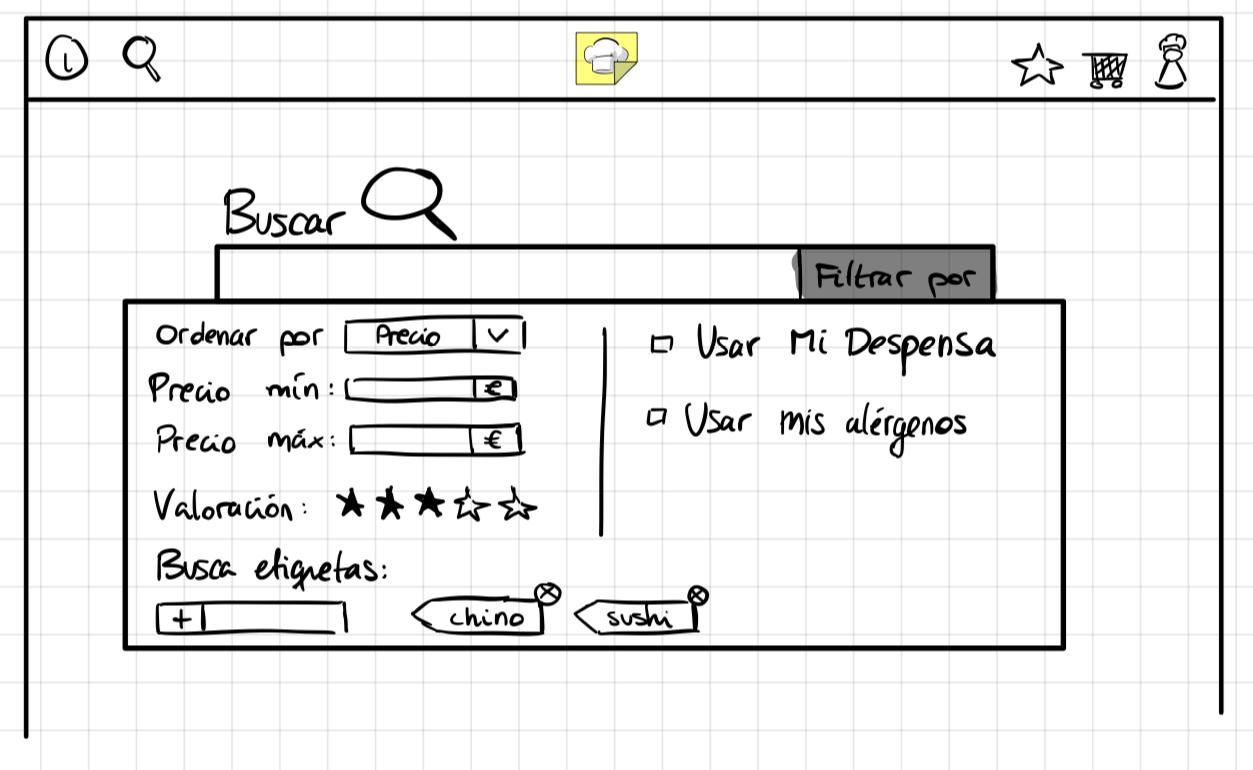 i
Buscar
Filtrar por
Ordenar por Precio
Precio mín: €
Precio máx: €
Valoración:
Busca etiquetas:
+ chino sushi
Usar Mi Despensa
Usar mis alérgenos